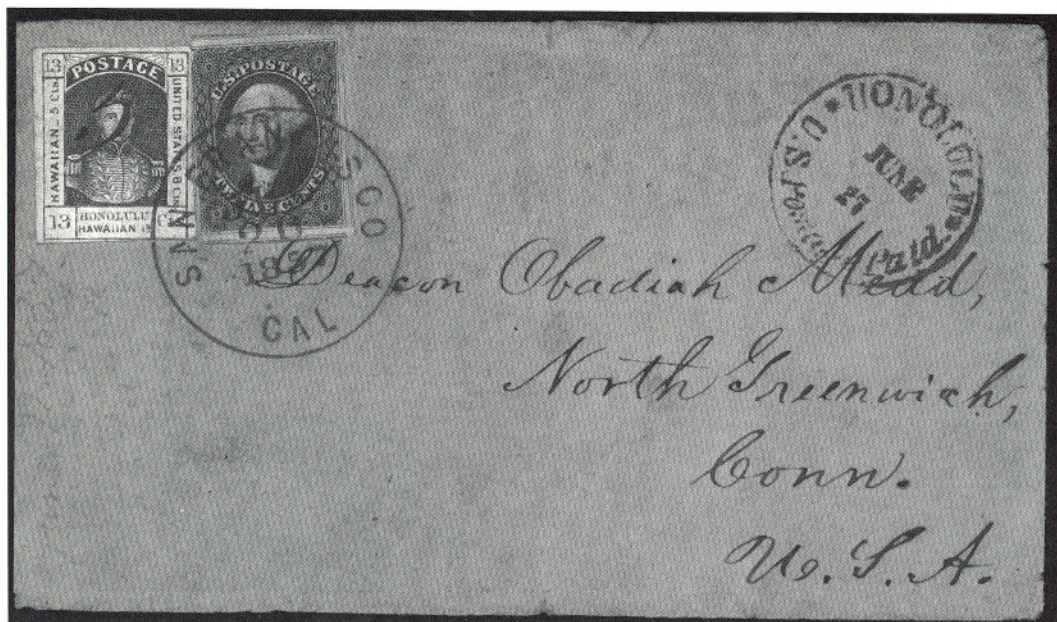 13 POSTAGE 13
HAWAIIAN_ 5 Cts.
UNITED STATES 8 Cts
13 HONOLULU C
HAWAIIAN IS
U.S. POSTAGE
TWELVE CENTS
SAN SCO
CAL
HONOLULU * U.S. Postage Paid. *
JUNE
27
Deacon Obadiah Mead,
North Greenwich,
Conn.
U. S. A.